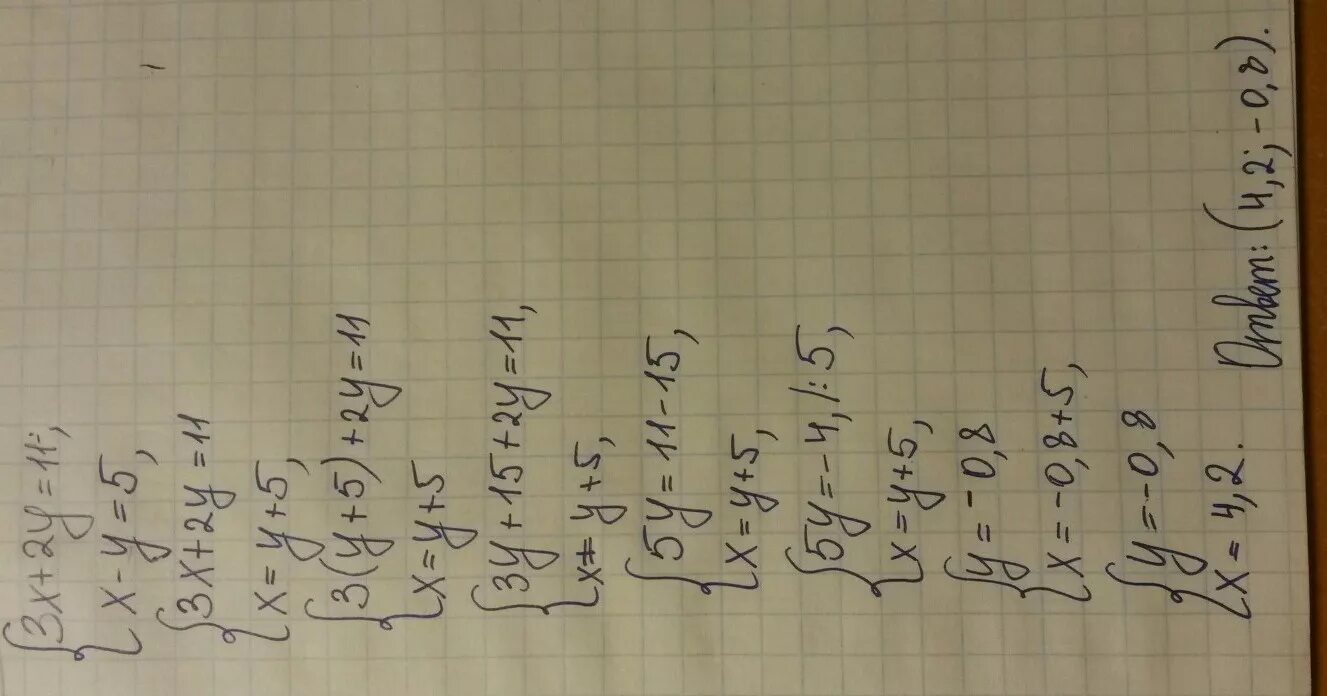 {3x+2y=11;
x-y=5,
{3x+2y=11
x=y+5,
{3(y+5)+2y=11
x=y+5
{3y+15+2y=11,
x=y+5,
{5y=11-15,
x=y+5,
{5y=-4, /:5,
x=y+5,
{y=-0,8
x=-0,8+5,
{y=-0,8
x=4,2. Ответ: (4,2; -0,8).